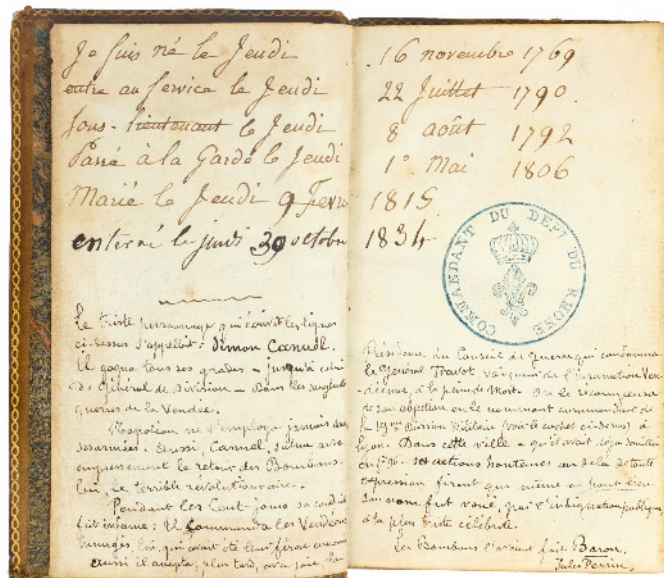 Je suis né le Jeudi 16 novembre 1769
entre au service le Jeudi 22 Juillet 1790.
sous-lieutenant le Jeudi 8 août 1792
Passé à la Garde le Jeudi 1° Mai 1806
Marié le Jeudi 9 Fevri 1815
enterré le jeudi 30 octobre 1834
COMMANDANT DU DEPT DU RHONE
Le triste personnage qui écrivit les lignes
ci-dessus s'appellait: Simon Canuel.
Il gagna tous ses grades – jusqu'à celui
de Général de Division – dans les sanglantes
guerres de la Vendée.
Napoléon ne l'employa jamais dans
ses armées. Aussi, Canuel, salua avec
empressement le retour des Bourbons.
lui, le terrible révolutionnaire.
Pendant les Cent-jours sa conduite
fut infame: Il commanda les Vendéens
insurgés, lui, qui avait été leur féroce
aussi il accepta, plus tard, avec joie la
Présidence du Conseil de guerre qui condamna
le Général Travot vainqueur de l'insurrection Ven-
déenne, à la peine de Mort. On le récompensa
de son abjection en le nommant commandant de
la 19me Division Militaire (voir le cachet ci-dessus) à
Lyon. Dans cette ville – qu'il avait déjà souillée
en 1796 – ses actions honteuses au delà de toute
expression firent que même en haut lieu
son nom fut voué, par l'indignation publique,
à la plus triste célébrité.
Les Bourbons l'avaient fait Baron.
Jules Perrin.